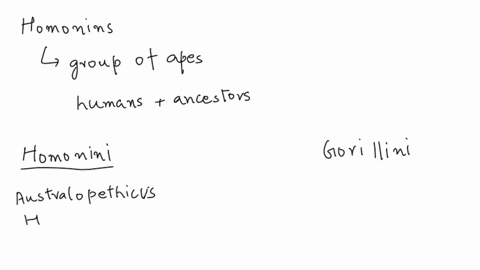 Homonins
↳ group of apes
humans + ancestors
Homonini
Gorillini
Australopethicus
H